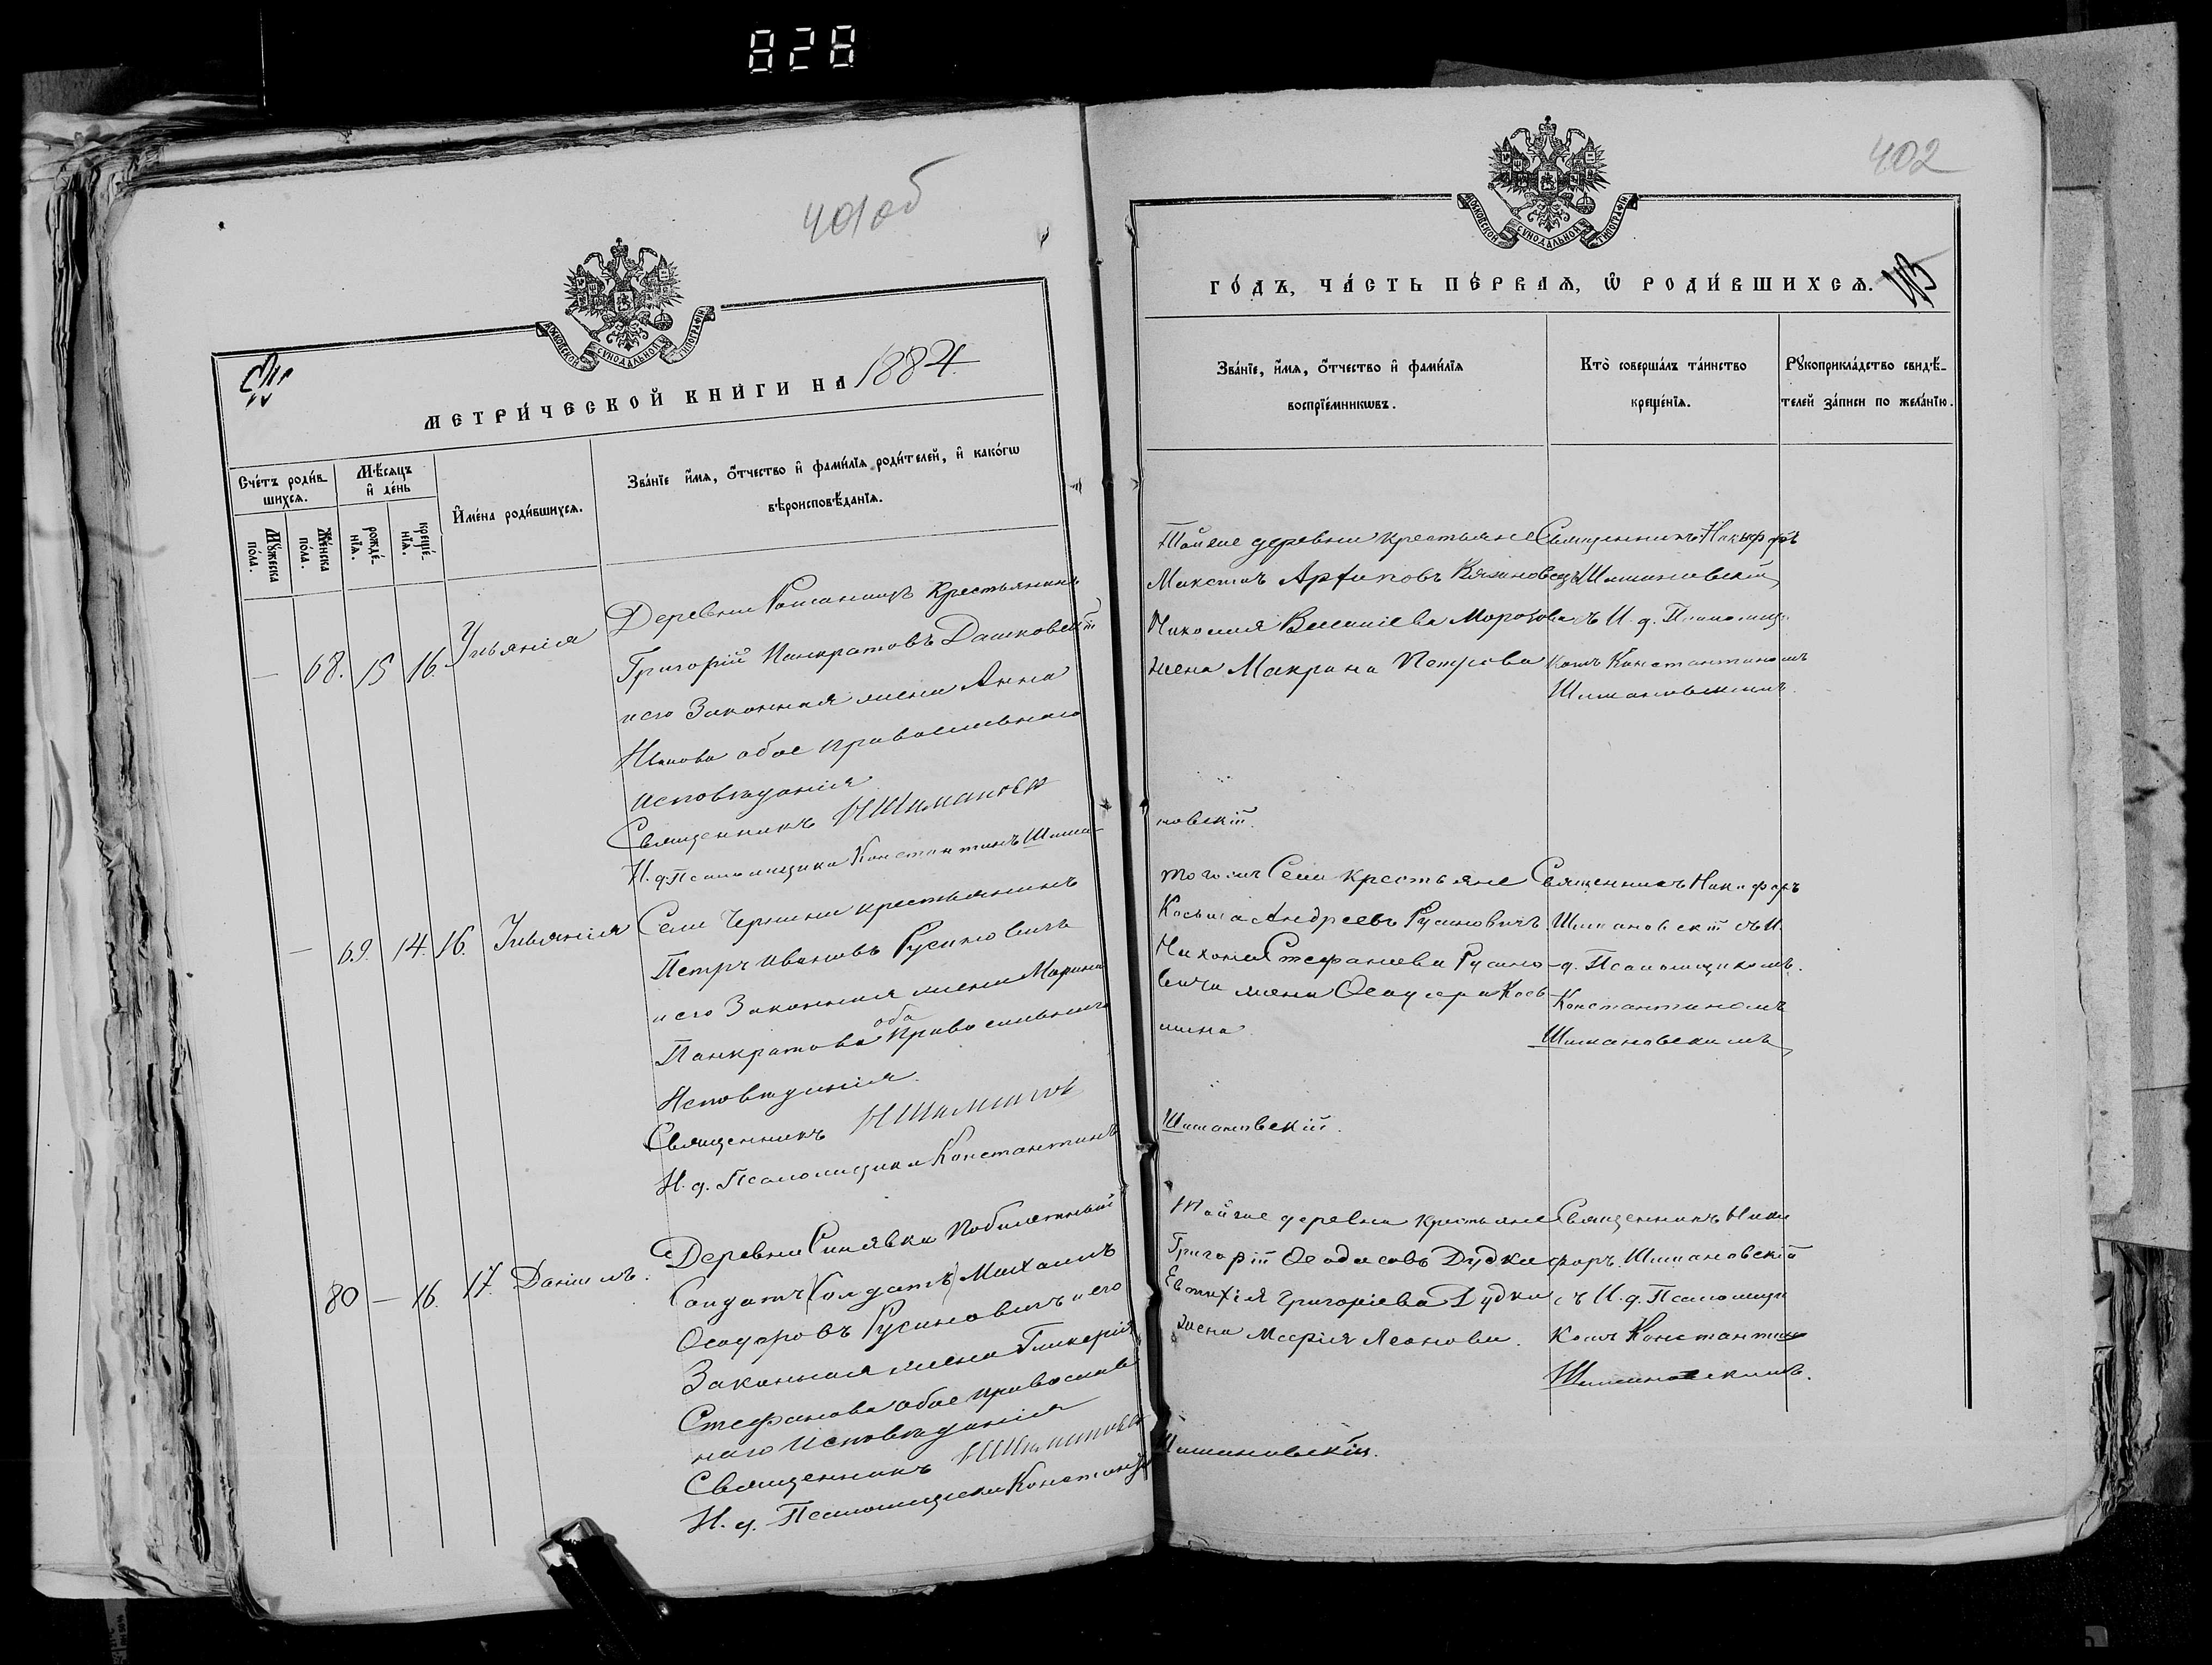 828
401об
МОСКОВСКОЙ СѴНОДАЛЬНОЙ ТИПОГРАФІИ
МЕТРИ́ЧЕСКОЙ КНИ́ГИ НА 1884.
Сче́тъ роди́в-
шихсѧ.
Мѣ́сяцъ
и҆ де́нь
И҆мена̀ роди́вшихсѧ.
Зва́нїе и҆́мѧ, ѻ҆́тчество и҆ фами́лїѧ роди́телей, и҆ како́гѡ
вѣроисповѣ́данїѧ.
Мꙋ́жеска
по́ла.
Же́нска
по́ла.
рожде́-
нїѧ.
креще́-
нїѧ.
— 68. 15 16. Ульянія
Деревни Крестьянинъ
Григорій Панкратовъ Дашковскій
и его Законная жена Анна
обое православнаго
исповѣданія
Священникъ Н Шиманов
И. д. Псаломщика Константинъ Шима-
— 69. 14. 16. Ульянія
Села крестьянинъ
Петръ Ивановъ Русиновичъ
и его Законная жена Марина
Панкратова оба Православнаго
Исповѣданія.
Священникъ Н Шиманов
И. д. Псаломщика Константинъ
80 — 16. 17. Даніилъ.
Деревни Синявки Побилетный
Солдатъ (Солдатъ) Михаилъ
Ѳеодоровъ Русиновичъ и его
Законная жена Гликерія
Стефанова обое православ
наго Исповѣданія
Священникъ Н Шиманов
И. д. Псаломщика Констант
402
МОСКОВСКОЙ СѴНОДАЛЬНОЙ ТИПОГРАФІИ
ГО́ДЪ, ЧА́СТЬ ПЕ́РВАѦ, Ѡ҆ РОДИ́ВШИХСѦ.
Зва́нїе, и҆́мѧ, ѻ҆́тчество и҆ фами́лїѧ
воспрїе́мникѡвъ.
Кто̀ соверша́лъ та́инство
креще́нїѧ.
Рꙋкоприкла́дство свидѣ́-
телей за́писи по жела́нїю.
Тойже деревни крестьяне
Максимъ Архиповъ
Морозова
жена Макрина Петрова
Священникъ Никифоръ
Шимановскій
съ И. д. Псаломщи-
комъ Константиномъ
Шимановскимъ.
новскій.
тогоже Села крестьяне
Косьма Андреевъ Русиновичъ
Стефанова Русино-
вича жена Ѳеодора Кось-
мина
Священникъ Никифоръ
Шимановскій съ И.
д. Псаломщикомъ.
Константиномъ
Шимановскимъ
Шимановскій.
Тойже деревни крестьяне
Григорій Ѳеодосовъ Дудка
Евтихія Григоріева Дудки
жена Марія Леонова.
Священникъ Ники
форъ Шимановскій
съ И. д. Псаломщи
комъ Константин
Шимановскимъ.
Шимановскій.